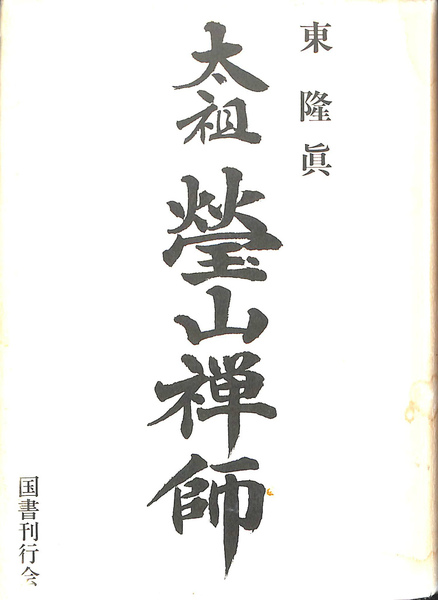 東隆眞
太祖 瑩山禅師
国書刊行会